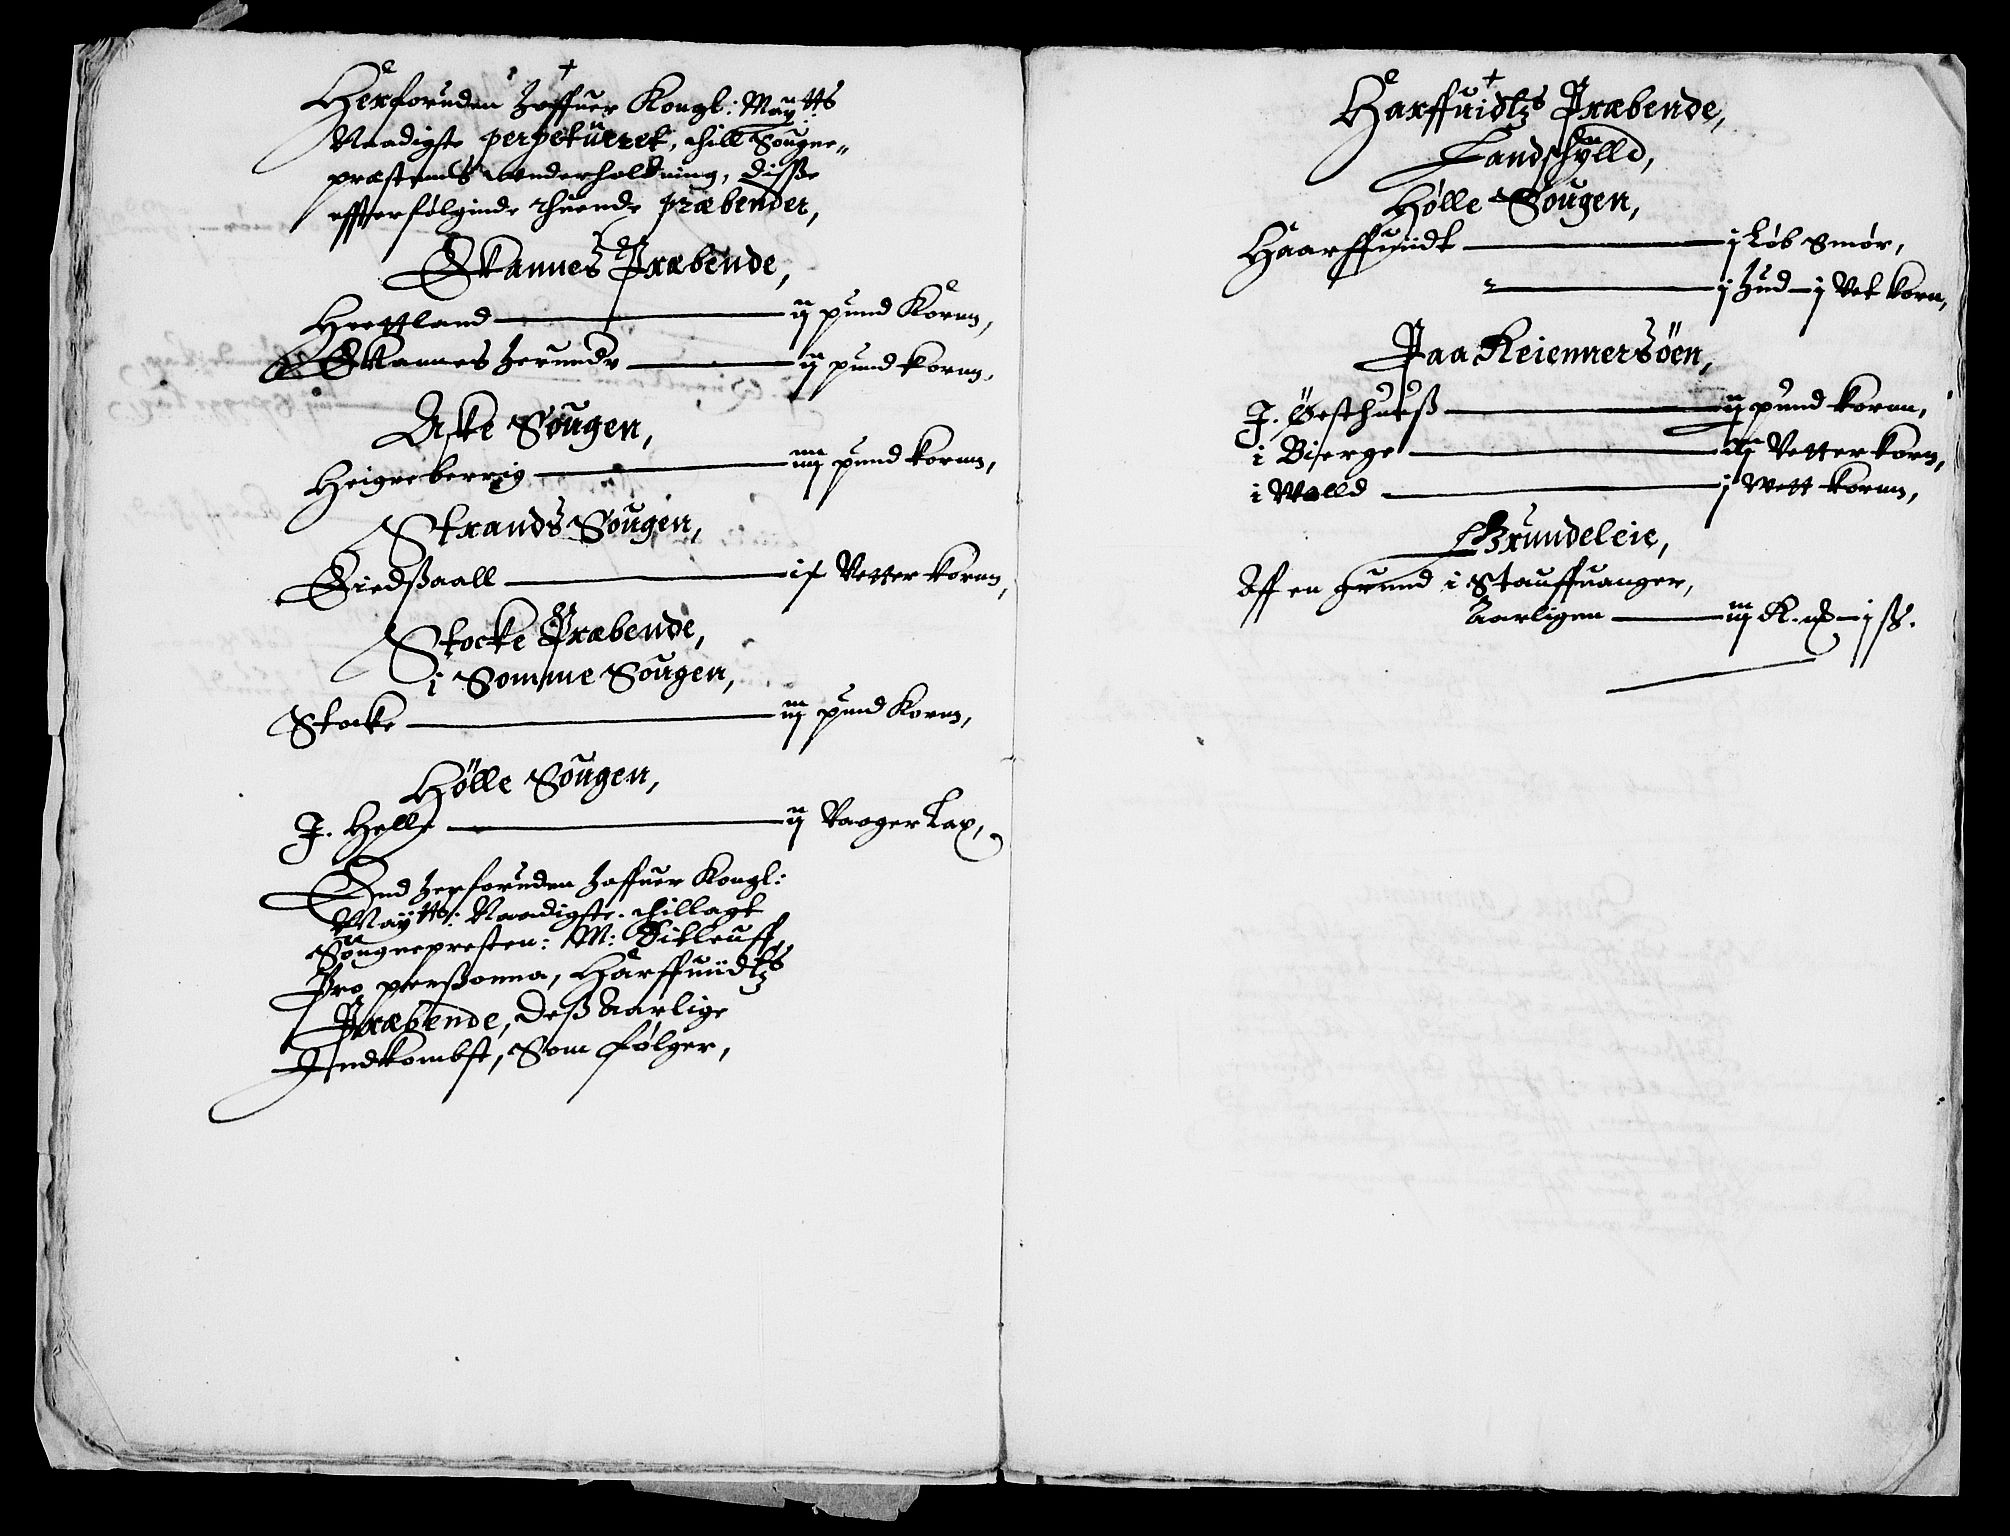 Herforuden Haffuer Kongl: Maÿtts
Naadigste perpetueret, thill Sougne„
præstens underholdning, disse
effterfølginde thuende præbender,
Skannes Præbende,
Hettland — ij pund Korn,
Skannes Herunde — ij pund korn,
Aske Sougen,
Heigreberrig — iiij pund korn,
Strands Sougen,
Eiedßaall — Vetter korn,
Stocke Præbende,
i Somme Sougen,
Stocke — iij pund Korn,
Hölle Sougen,
J. Helle — ij Vaager Lax,
End herforuden haffuer Kongl:
Maÿtts: Naadigste. thillagt
Sougnepresten: M: Ditleuff
Pro perßonna, Harffuidtz
Præbende, deß Aarlige
Indkombst, Som følger,
Harffuidtz Præbende,
Landschylld,
Hölle Sougen,
Haarffuidt — j Løb Smør,
j Hud — j Vet korn,
Paa Reiennersöen,
J. Østhuuß — ij pund korn,
i Bierge — iij Vetter korn,
i Walld — j Wett korn,
Grundeleie,
Aff en grund i Stauffuanger,
Aarligen — iij K. — j ß.